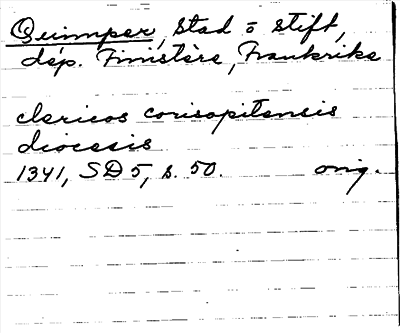 Quimper, stad o stift,
dép. Finistère, Frankrike
clericos corisopitensis
diocesis
1341, SD 5, s. 50. orig.